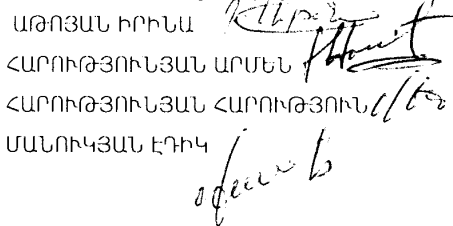 ԱԹՈՅԱՆ ԻՐԻՆԱ
ՀԱՐՈՒԹՅՈՒՆՅԱՆ ԱՐՄԵՆ
ՀԱՐՈՒԹՅՈՒՆՅԱՆ ՀԱՐՈՒԹՅՈՒՆ
ՄԱՆՈՒԿՅԱՆ ԷԴԻԿ